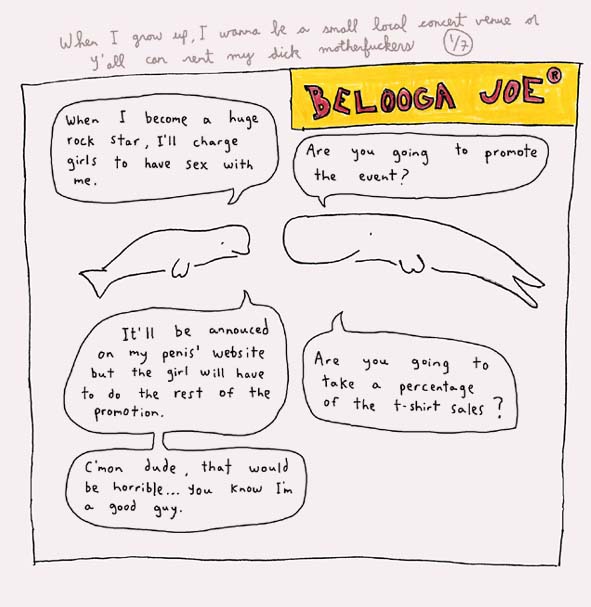 When I grow up, I wanna be a small local concert venue or
y'all can rent my dick motherfuckers 1/7
BELOOGA JOE ®
When I become a huge
rock star, I'll charge
girls to have sex with
me.
Are you going to promote
the event?
It'll be annouced
on my penis' website
but the girl will have
to do the rest of the
promotion.
Are you going to
take a percentage
of the t-shirt sales?
C'mon dude, that would
be horrible... you know I'm
a good guy.